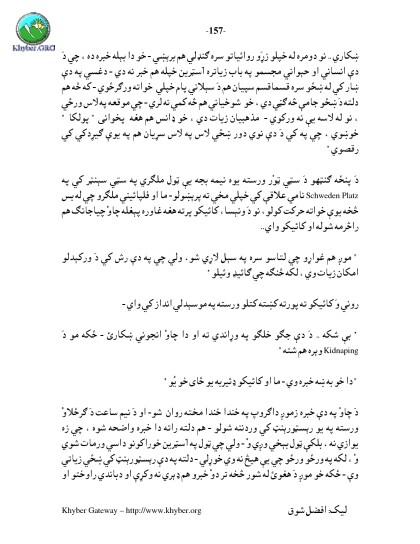 -157-
Khyber.ORG
ښکاري.. نو دومره له خپلو زړو رواياتو سره ګنډلي هم برېښي - خو دا بېله خبره ده ، چي دَ
دې انساني او حيواني مجسمو په باب زياتره آسټرين خپله هم خبر نه دي - دغسي په دې
ښار کي له ښځو سره قسماقسم سپيان هم دَ سېلاني پام خپلي خواته ورګرځوي - که څه هم
دلته دَ ښځو جامې څه ګنې دي ، خو شوخياني هم څه کمي نه لري - چي موقعه په لاس ورځي
، نو له لاسه يې نه ورکوي - مذهبيان زيات دي ، خو ډانس هم هغه پخوانی " پولکا "
خوښوي ، چي په کي دَ دې نوي دور ښځي لاس په لاس سړيان هم په يوې ګيرډکي کي
رقصوي "
دَ پنځه ګنټهو دَ سټي ټوْر ورسته يوه نيمه بجه يې ټول ملګري په سټي سېنټر کي په
Schweden Platz نامي علاقې کي خپلي مخي ته پرېښولو - ما او فليائيني ملګرو چي له بس
څخه يوې خواته حرکت کولو ، نو دَ ونېسا ، کائيکو پرته هغه غاوره پېغله چاوْ چياجانګ هم
راڅرمه شوله او کائيکو واې..
" موږ هم غواړو چي لتاسو سره په سېل لاړي شو ، ولي چي په دې رش کي دَ ورکېدلو
امکان زيات وي ، لکه څنګه چي ګائيډ وئيلو "
روني وَ کائيکو ته پورته کښته کتلو ورسته په موسېدلي انداز کي واې -
" بې شکه .. دَ دې جګو خلګو په وړاندي ته او دا چاوْ انجوني ښکارئ - ځکه مو دَ
Kidnaping وېره هم شته "
"دا خو به ښه خبره وي - ما او کائيکو ډئيربه يو ځای خو يُو "
دَ چاوْ په دې خبره زموږ دا ګروپ په خندا خندا مخته روان شو - او دَ نيم ساعت دَ ګرځلاوْ
ورسته په يو رېسټورېنټ کي وردننه شولو - هم دلته راته دا خبره واضحه شوه ، چي زه
يوازي نه ، بلکې ټول بېخي وږي وْ - ولي چي ټول په آسټرين خوراکونو داسي ورمات شوي
وْ ، لکه په ورځو ورځو چي يې هيڅ نه وي خوړلي - دلته په دې رېسټورېنټ کي ښځي زياتي
وې - ځکه خو موږ دَ هغوئ له شور څخه تر دوْ خبرو هم ډېري نه وکړې او دباندي راوختو او
Khyber Gateway – http://www.khyber.org
ليک: افضل شوق